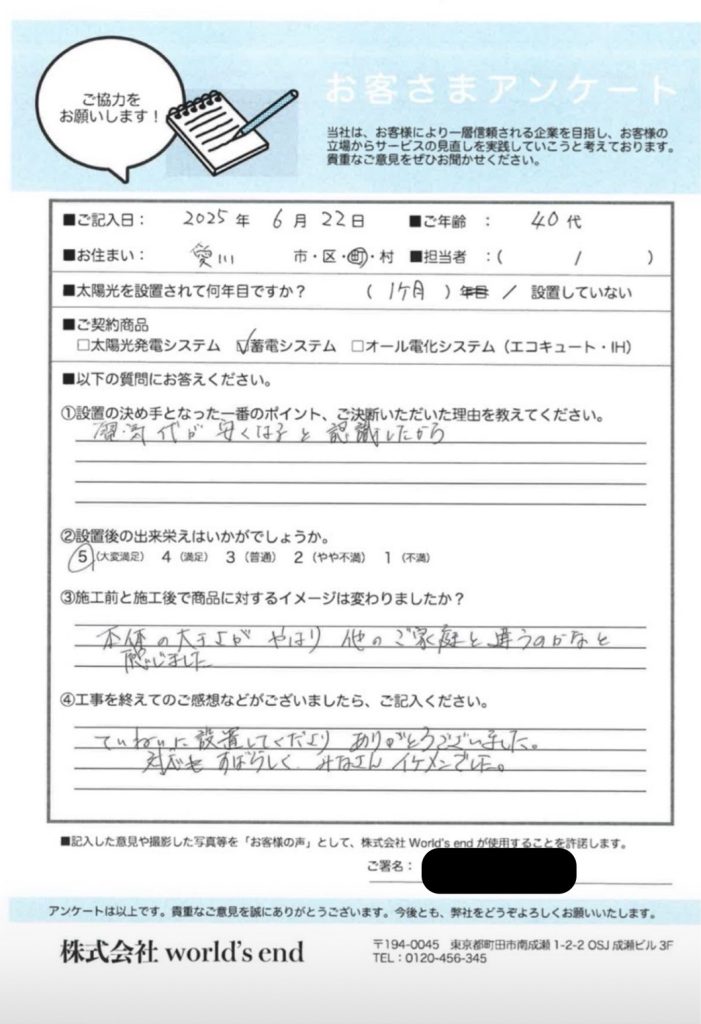 ご協力を
お願いします!
お客さまアンケート
当社は、お客様により一層信頼される企業を目指し、お客様の
立場からサービスの見直しを実践していこうと考えております。
貴重なご意見をぜひお聞かせください。
■ご記入日: 2025年 6月 22日 ■ご年齢 : 40代
■お住まい: 愛川 市・区・町・村 ■担当者 :( / )
■太陽光を設置されて何年目ですか? ( 1ケ月 ) 年目 / 設置していない
■ご契約商品
□太陽光発電システム ☑蓄電システム □オール電化システム(エコキュート・IH)
■以下の質問にお答えください。
①設置の決め手となった一番のポイント、ご決断いただいた理由を教えてください。
電気代が安くなると認識したから
②設置後の出来栄えはいかがでしょうか。
5(大変満足) 4(満足) 3(普通) 2(やや不満) 1(不満)
③施工前と施工後で商品に対するイメージは変わりましたか?
本体の大きさが やはり 他のご家庭と違うのかなと
感じました
④工事を終えてのご感想などがございましたら、ご記入ください。
ていねいに設置してくださり ありがとうございました。
対応も すばらしく、みなさん イケメンでした。
■記入した意見や撮影した写真等を「お客様の声」として、株式会社World's endが使用することを許諾します。
ご署名:
アンケートは以上です。貴重なご意見を誠にありがとうございます。今後とも、弊社をどうぞよろしくお願いいたします。
株式会社 world's end
〒194-0045 東京都町田市南成瀬1-2-2 OSJ成瀬ビル3F
TEL:0120-456-345